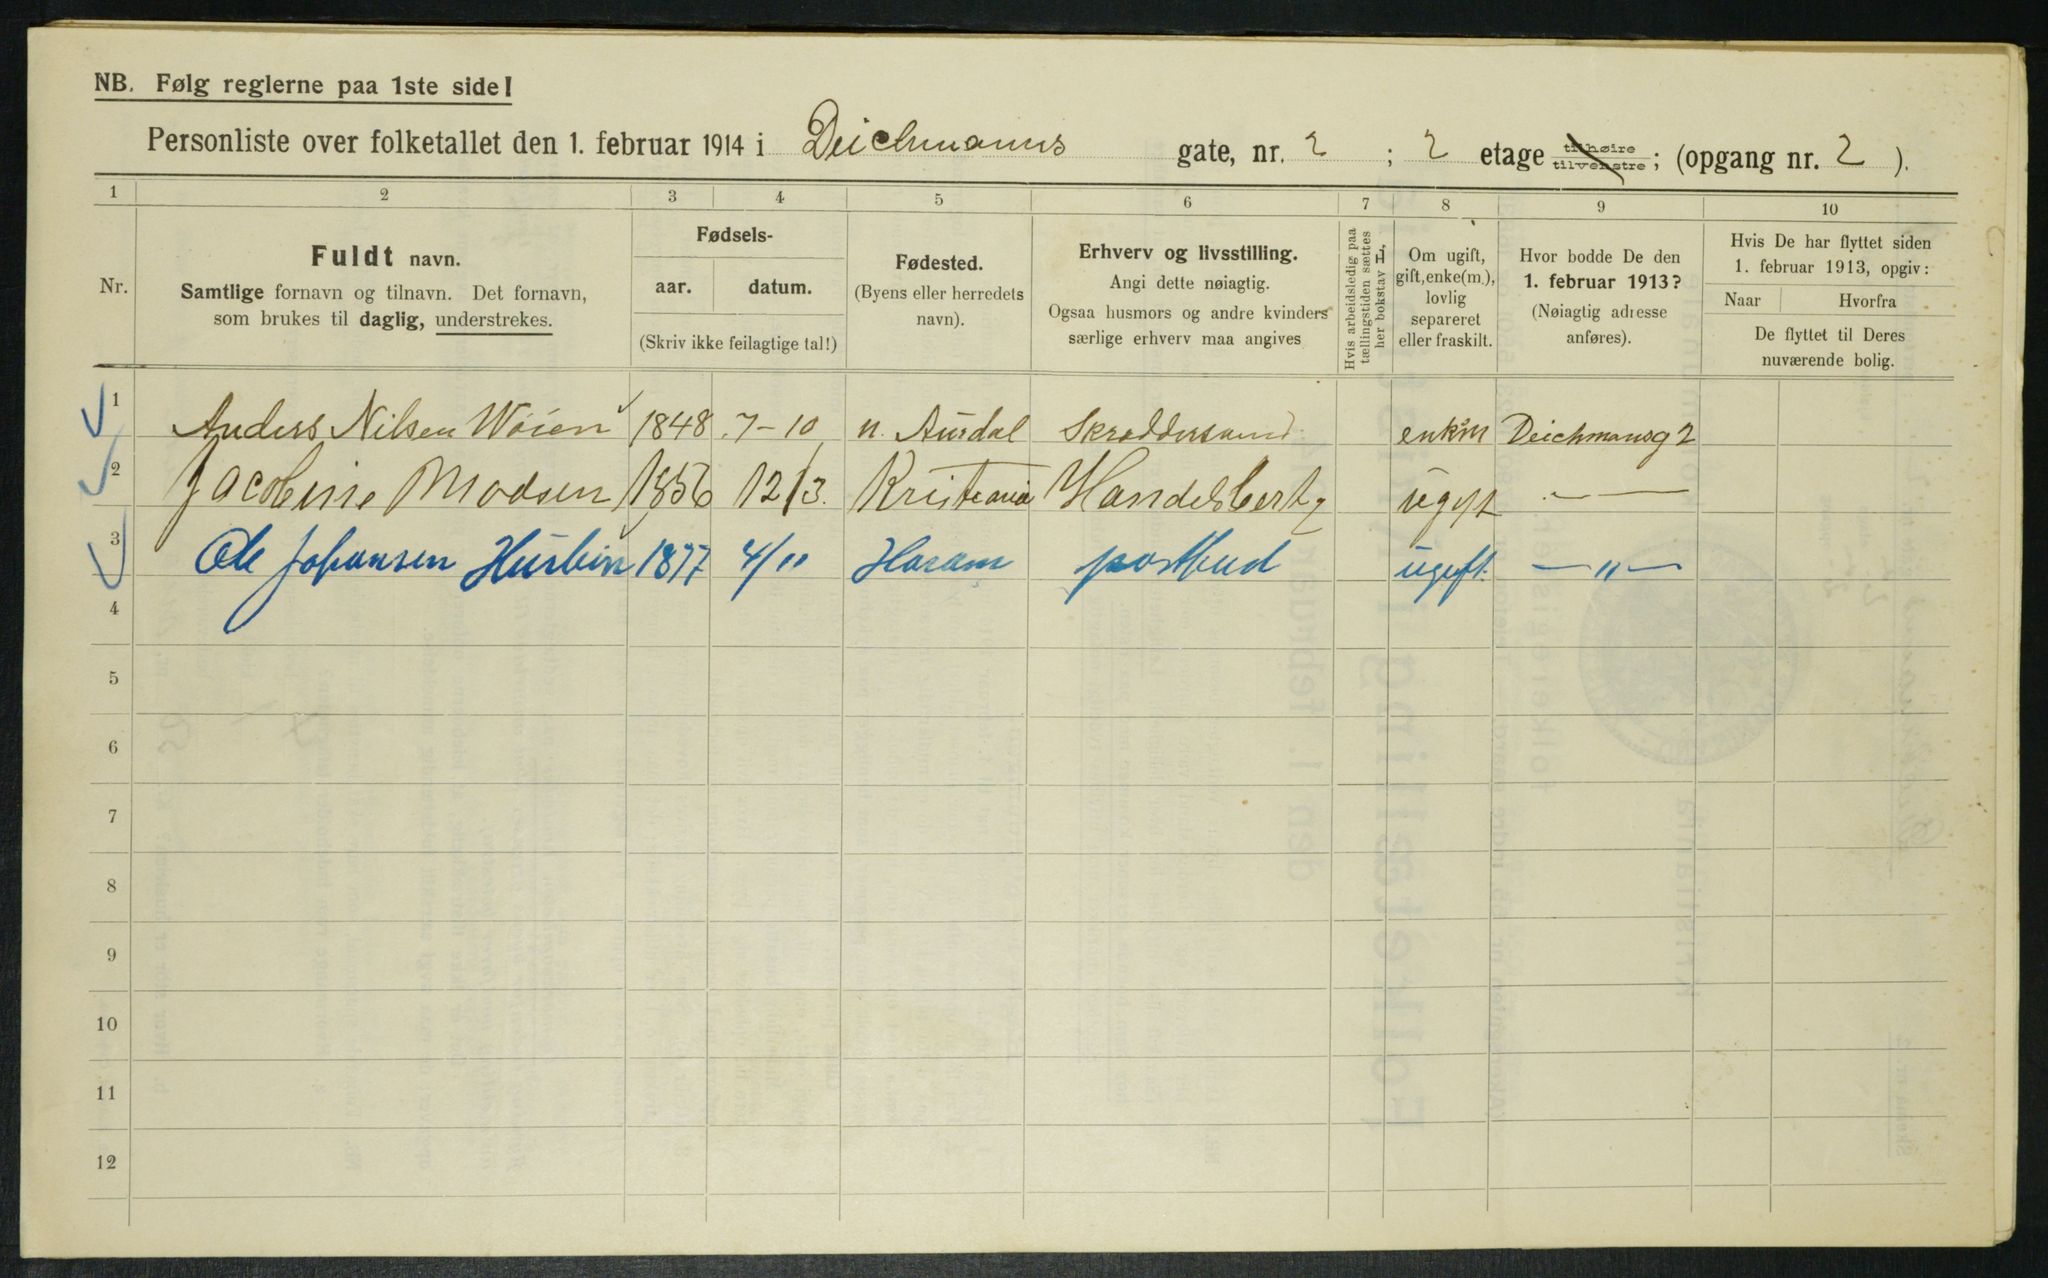 NB. Følg reglerne paa 1ste side!
Personliste over folketallet den 1. februar 1914 i Deichmanns gate, nr. 2 ; 2 etage tilhøire tilvenstre ; (opgang nr. 2 ).
1 2 3 4 5 6 7 8 9 10
Nr.
Fuldt navn.
Samtlige fornavn og tilnavn. Det fornavn,
som brukes til daglig, understrekes.
Fødsels-
aar. datum.
(Skriv ikke feilagtige tal!)
Fødested.
(Byens eller herredets
navn).
Erhverv og livsstilling.
Angi dette nøiagtig.
Ogsaa husmors og andre kvinders
særlige erhverv maa angives
Hvis arbeidsledig paa
tællingstiden sættes
her bokstav L,
Om ugift,
gift, enke(m.),
lovlig
separeret
eller fraskilt.
Hvor bodde De den
1. februar 1913?
(Nøiagtig adresse
anføres).
Hvis De har flyttet siden
1. februar 1913, opgiv:
Naar Hvorfra
De flyttet til Deres
nuværende bolig.
1 Anders Nilsen Wøien 1848 7-10 n. Aurdal enkm Deichmansg 2
2 Jacobine Madsen 1856 12/3 Kristiania Handelsbert ugyt - —
3 Ole Johansen 1877 4/11 Haram postbud ugift — " —
4
5
6
7
8
9
10
11
12